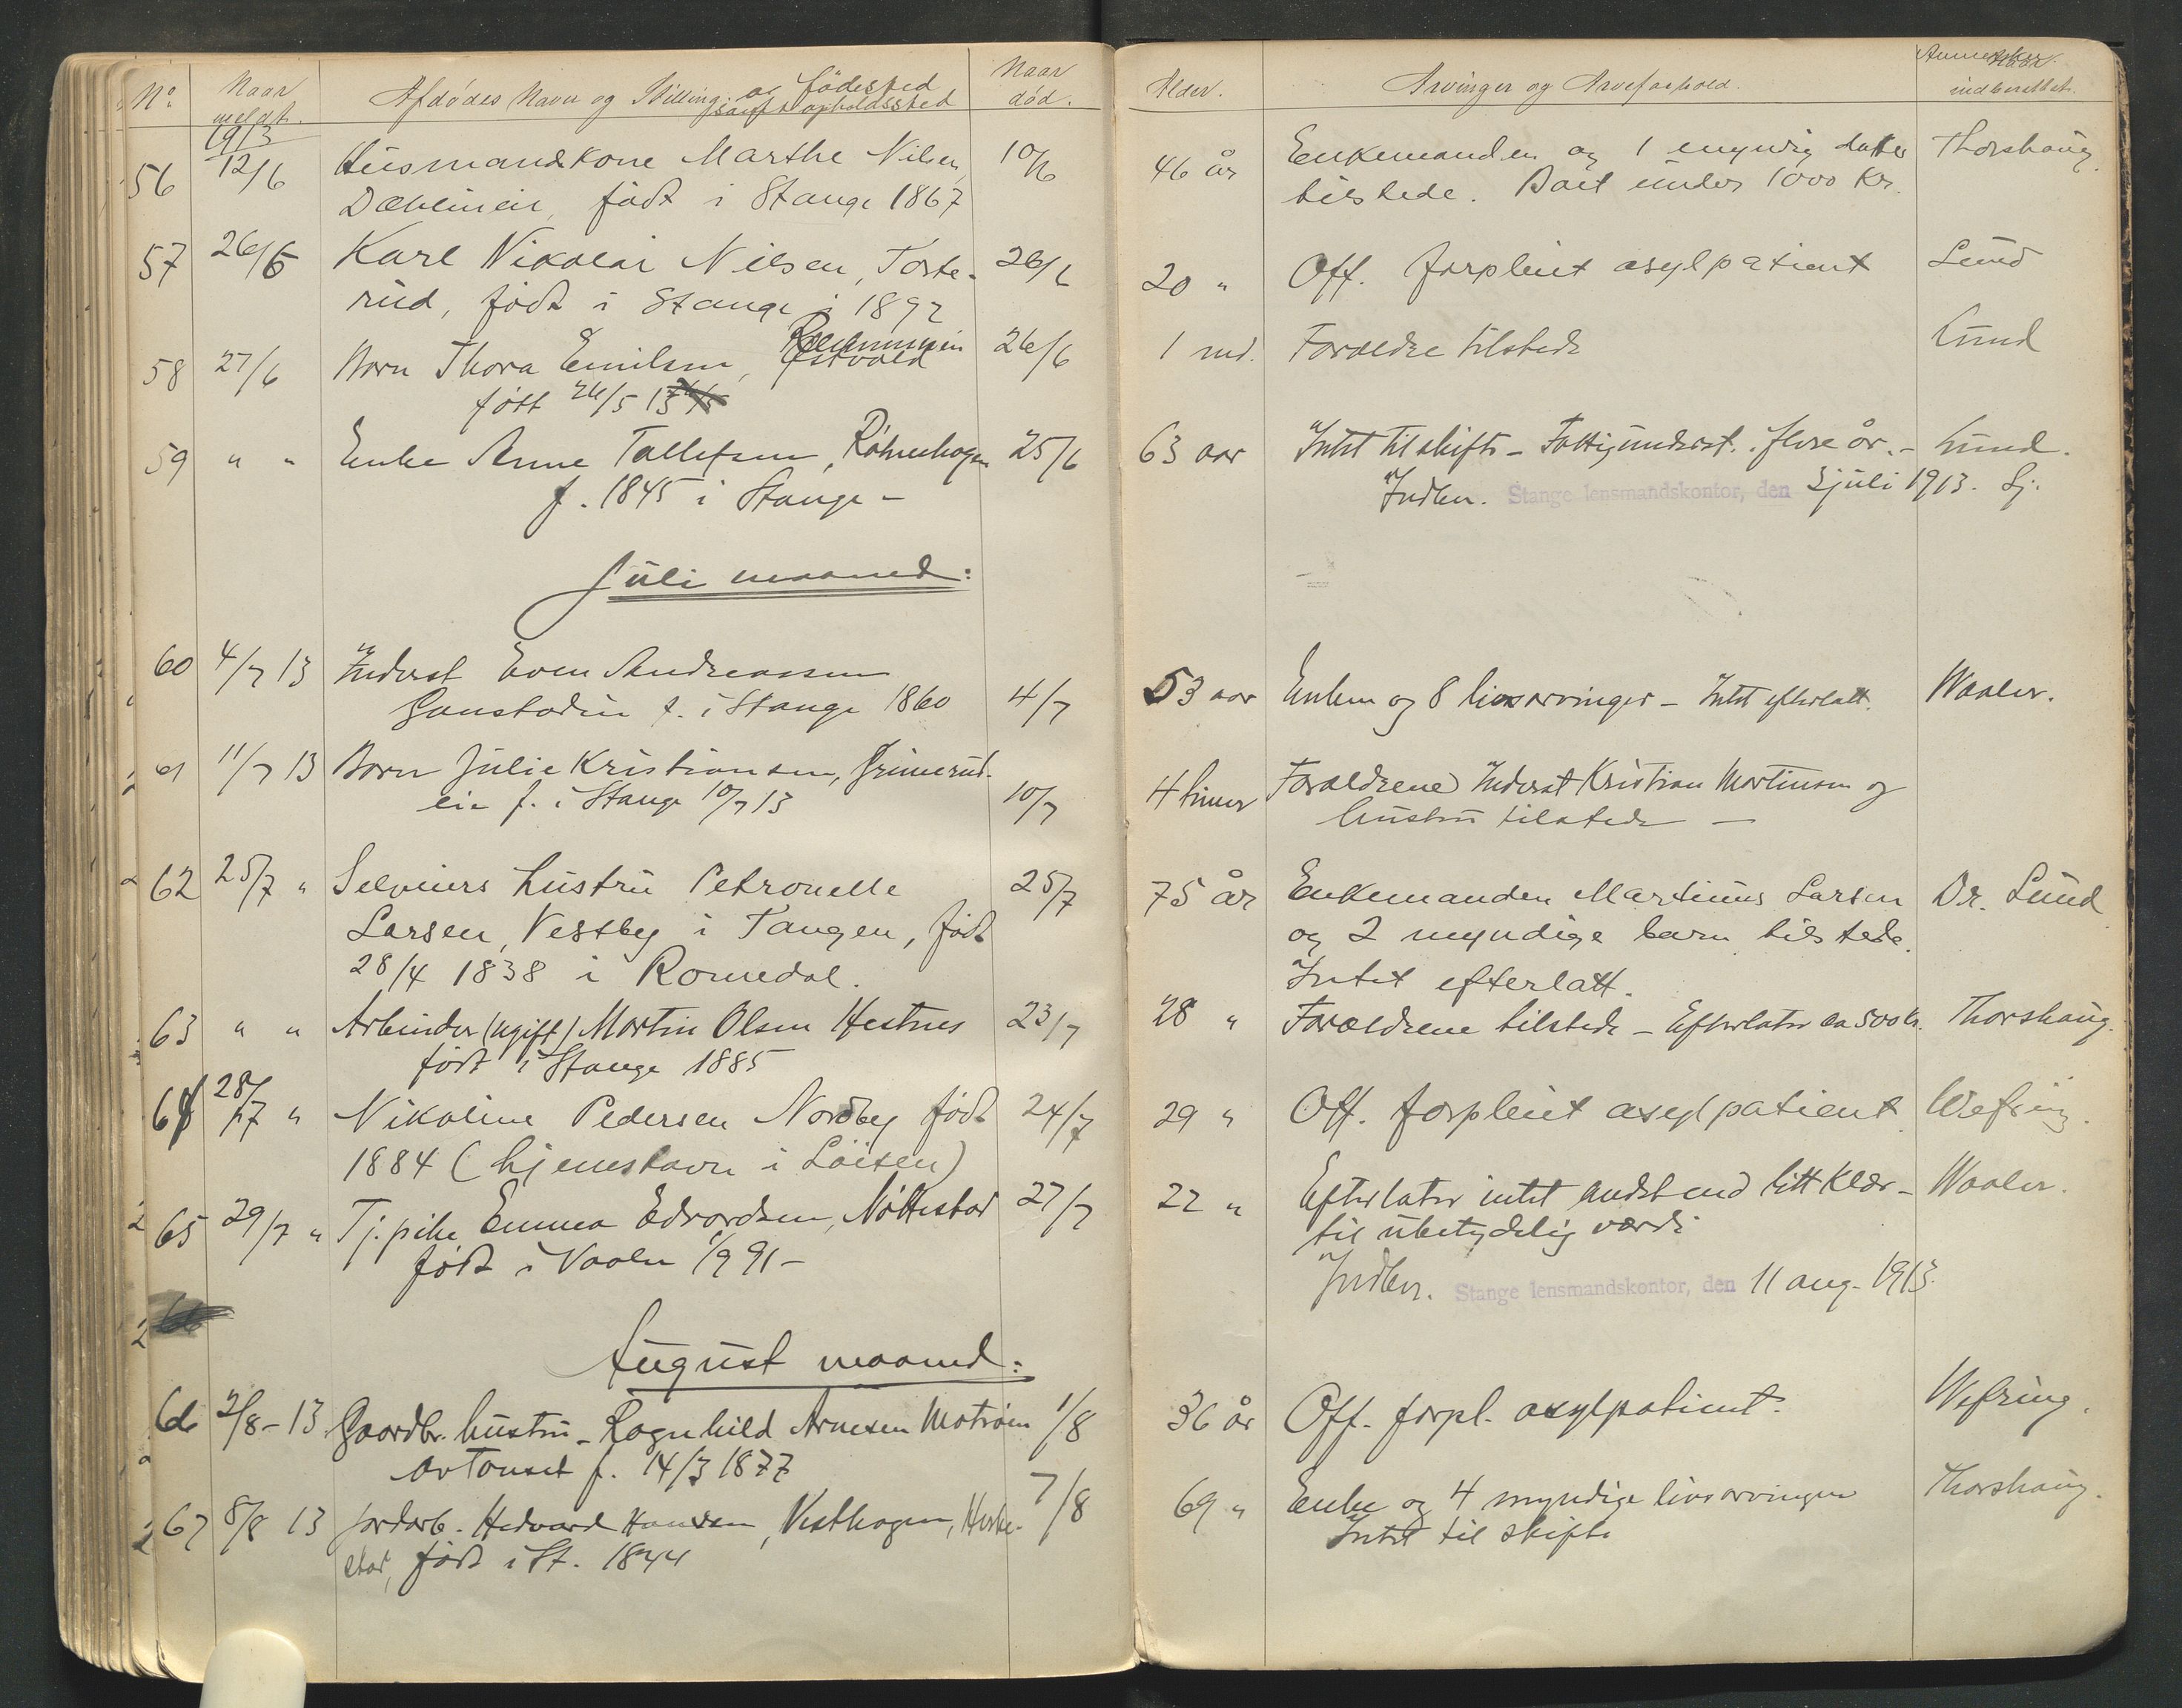 No. Naar meldt. Afdødes Navn og Stilling. og fødested samt opholdssted Naar død. Alder. Arvinger og Arveforhold. Anmerkn. Naar indberettet.
1913
56 12/6 Husmandskone Marthe Nilsen 10/6 46 år Enkemanden og 1 umyndig datter Thorshaug.
født i Stange 1867 tilstede. Boet under 1000 Kr.
57 26/6 Karl Nikolai Nilsen, Torte- 26/6 20 " Off. forpleiet asylpatient Lund
rud, født i Stange i 1892
58 27/6 Barn Thora Emilsen, Østvold 26/6 1 md. Forældre tilstede Lund
født 26/5 13
59 " " Enke Anne Tollefsen, 25/6 63 aar Intet til skifte - Fattigunderst. i flere år. - Lund.
f. 1845 i Stange - Indber. Stange lensmandskontor, den 3 juli 1913. Lj.
Juli maaned:
60 4/7 13 Inderst Even Andreassen
Gaustadeie f. i Stange 1860 4/7 53 aar Enken og 8 livsarvinger - Intet efterlatt. Waaler.
61 11/7 13 Barn Julie Kristiansen, Grimerud-
eie f. i Stange 10/7 13 10/7 4 timer Forældrene Inderst Kristian Mortinsen og
hustru tilstede -
62 25/7 " Selveiers hustru Petronelle 25/7 75 år Enkemanden Martinus Larsen Dr. Lund
Larsen, Vestby i Tangen, født og 2 myndige barn tilstede.
28/4 1838 i Romedal. Intet efterlatt.
63 " " Arbeider (ugift) Martin Olsen Hestnes 23/7 28 " Forældrene tilstede - Efterlater ca 500 kr. Thorshaug.
født i Stange 1885
64 28/7 " Nikoline Pedersen Nordby født 24/7 29 " Off. forpleiet asylpatient. Wefring.
1884 (hjemstavn i Löiten)
65 29/7 " Tj.pike Emma Edvardsen, Nøttestad 27/7 22 " Efterlater intet andet end litt klær - Waaler.
født i Vaaler 1/9 91 - til ubetydelig værdi
Indber. Stange lensmandskontor, den 11 aug. 1913.
August maaned:
66 2/8 - 13 Gaardbr. hustru - Ragnhild Arnesen Motrøen 1/8 36 år Off. forpl. asylpatient. Wefring.
av Tønset f. 14/3 1877
67 8/8 13 Jordarb. Hedvard Hansen, Vesthagen, Herke- 7/8 69 " Enke og 4 myndige livsarvinger Thorshaug.
stad, født i St. 1844 Intet til skifte